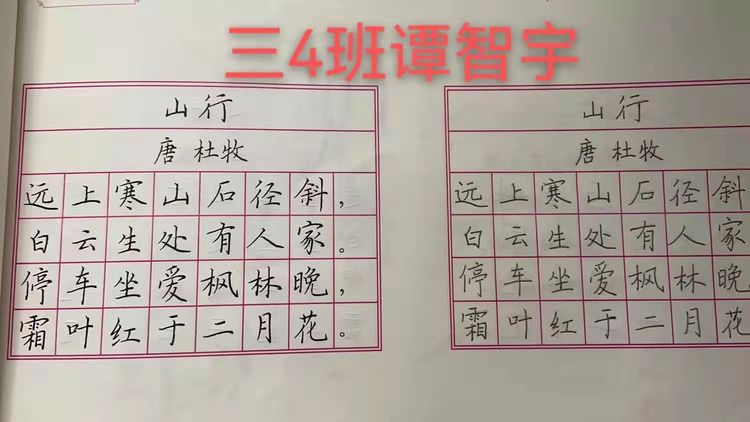 三4班谭智宇
山行
唐 杜牧
远上寒山石径斜，
白云生处有人家。
停车坐爱枫林晚，
霜叶红于二月花。
山行
唐 杜牧
远上寒山石径斜
白云生处有人家
停车坐爱枫林晚
霜叶红于二月花